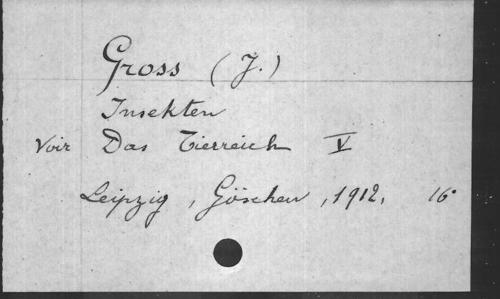 Gross (J.)
Insekten
Voir Das Tierreich V
Leipzig, Göschen, 1912, 16°